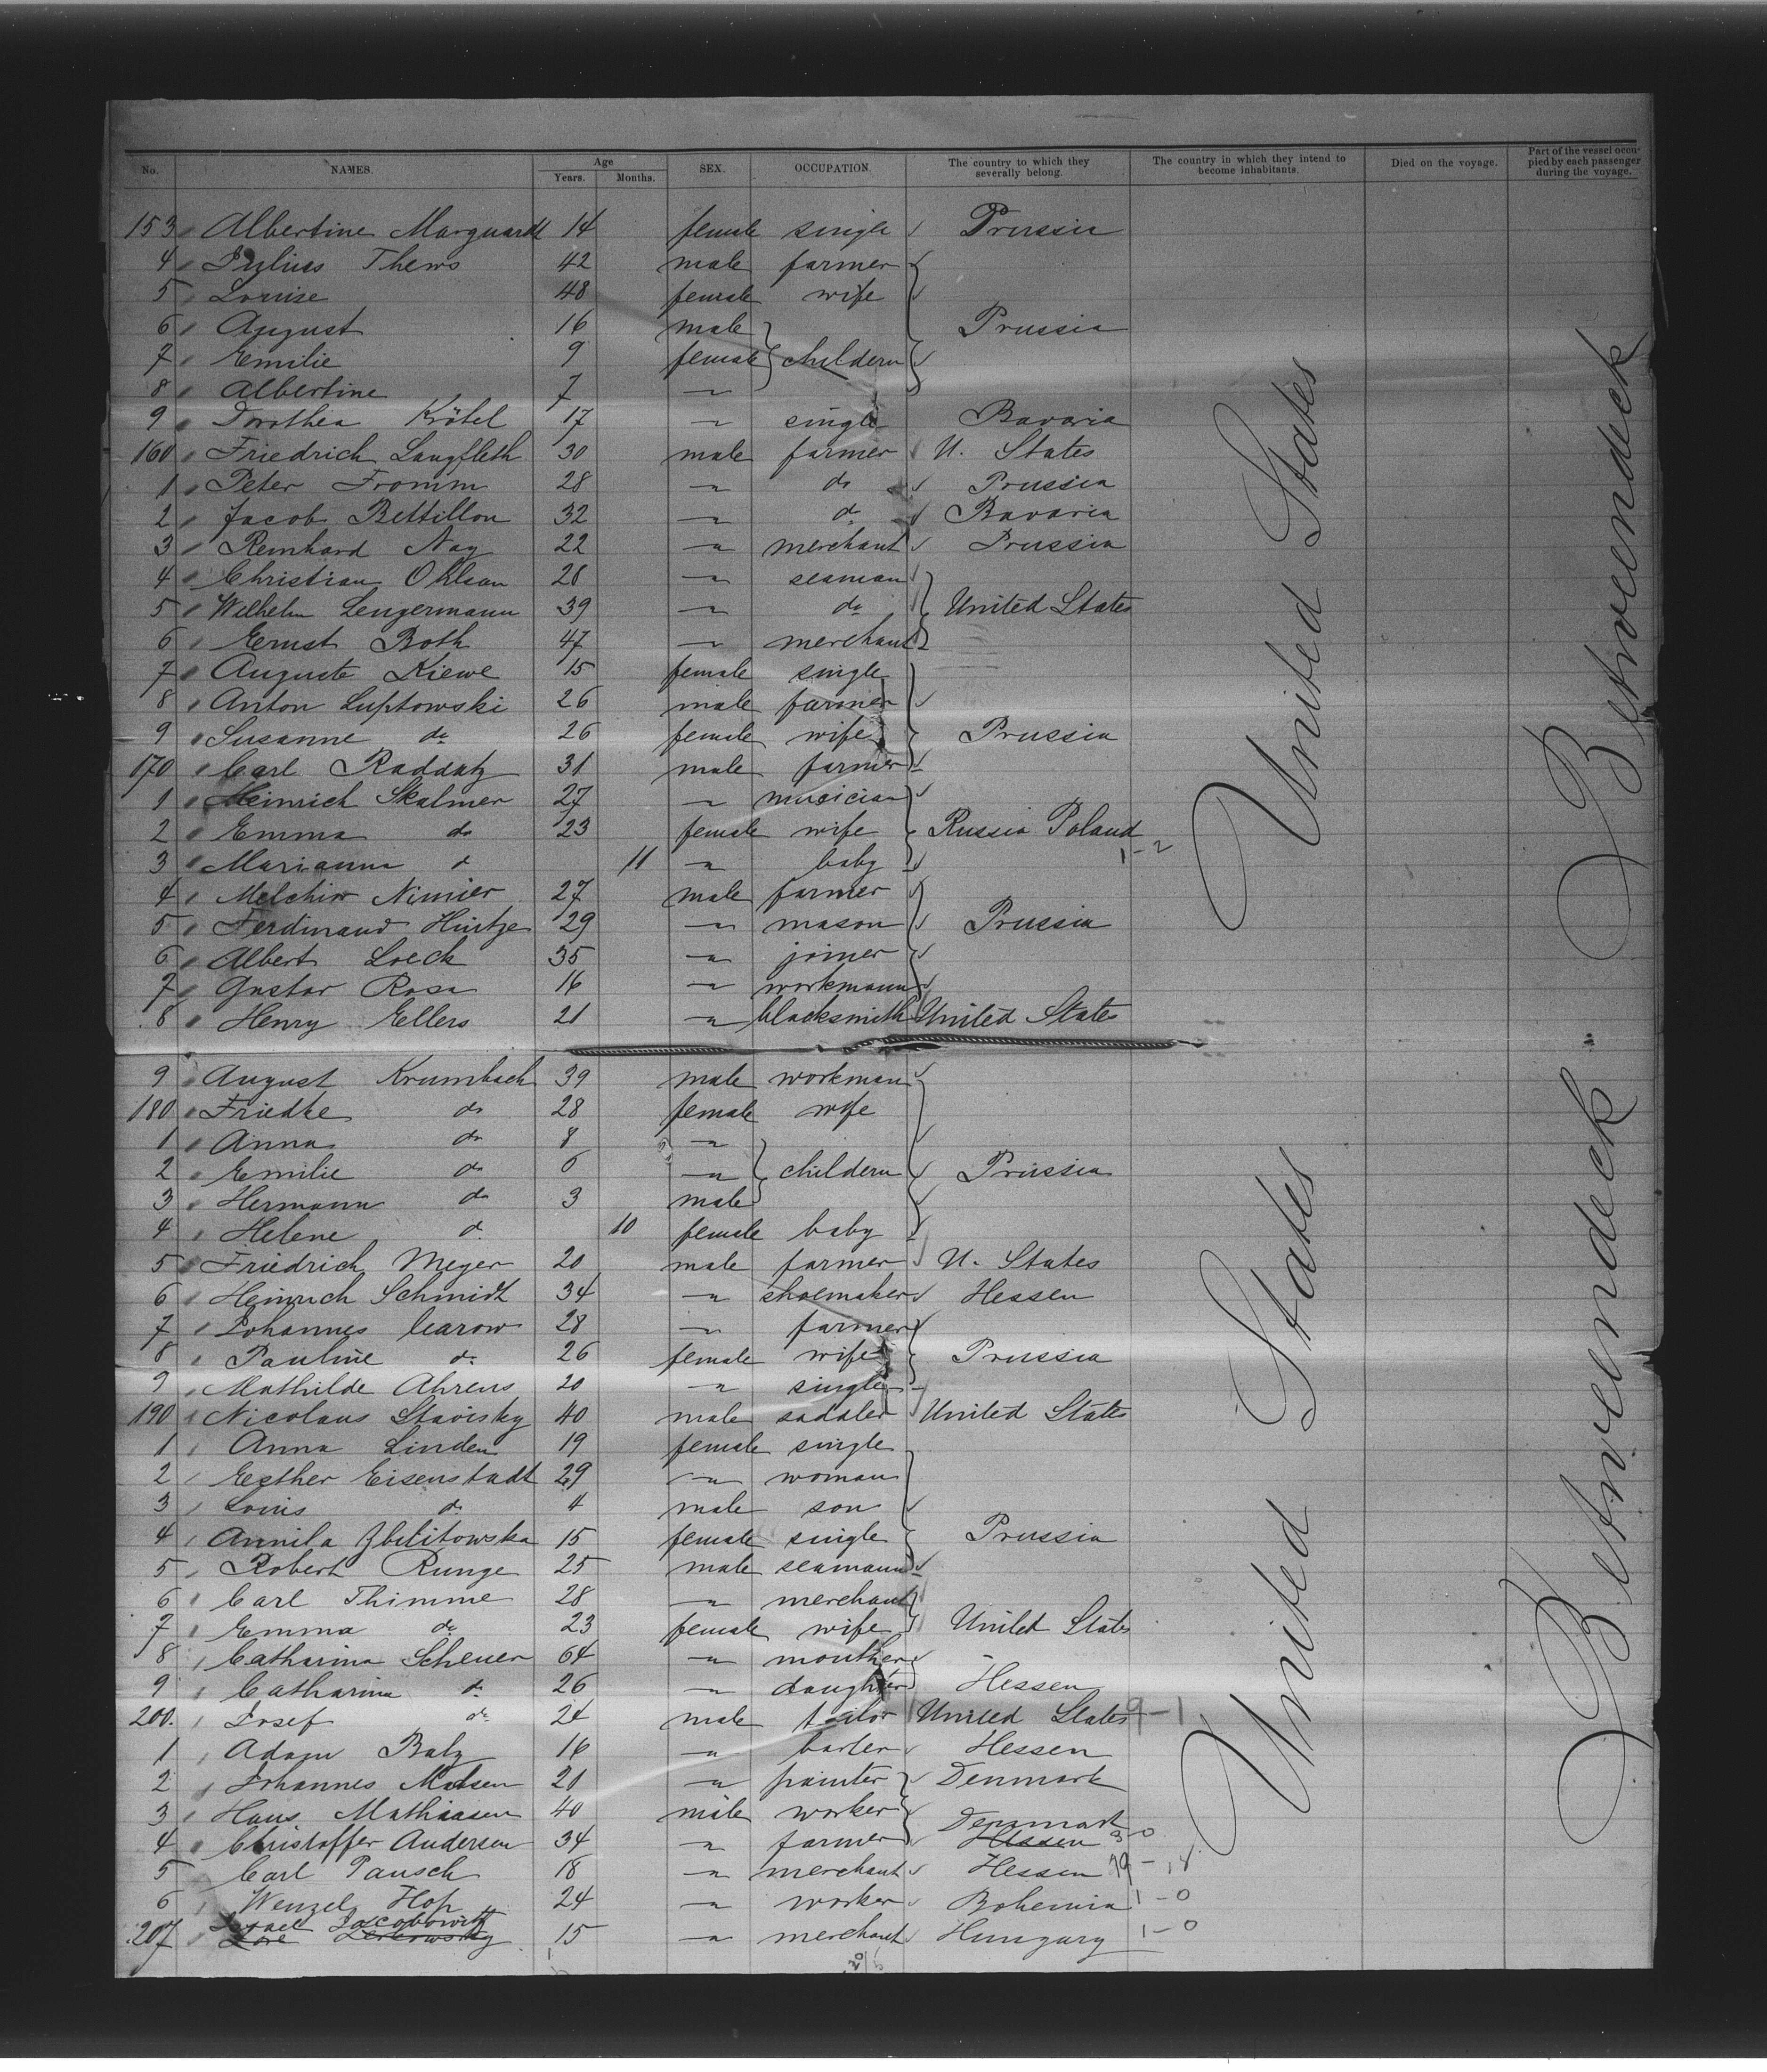 No. NAMES. Age Years. Months. SEX. OCCUPATION. The country to which they severally belong. The country in which they intend to become inhabitants. Died on the voyage. Part of the vessel occupied by each passenger during the voyage.
153 Albertine Marquardt 14 female single Prussia
4 Julius Thews 42 male farmer
5 Louise 48 female wife
6 August 16 male Prussia
7 Emilie 9 female childern
8 Albertine 7 "
9 Dorothea Krötel 17 " single Bavaria
160 Friedrich Langfleth 30 male farmer U. States
1 Peter Fromm 28 " do Prussia
2 Jacob Bettillon 32 " do Bavaria
3 Reinhard Nay 22 " merchant Prussia
4 Christian Ohlsen 28 " seaman
5 Wilhelm Lengermann 39 " do United States
6 Ernst Both 47 " merchant
7 Auguste Kiewe 15 female single
8 Anton Luptowski 26 male farmer
9 Susanne do 26 female wife Prussia
170 Carl Raddatz 31 male farmer
1 Heinrich Skalmer 27 " musician
2 Emma do 23 female wife Russia Poland
3 Marianna d 11 " baby 1-2
4 Melchior Nimier 27 male farmer
5 Ferdinand Hintze 29 " mason Prussia
6 Albert Loeck 35 " joiner
7 Gustav Rosa 16 " workmann
8 Henry Ellers 21 " blacksmith United States
9 August Krumbach 39 male workman
180 Friedke do 28 female wife
1 Anna do 8 "
2 Emilie do 6 " childern Prussia
3 Hermann do 3 male
4 Helene d 10 female baby
5 Friedrich Meyer 20 male farmer U. States
6 Heinrich Schmidt 34 " shoemaker Hessen
7 Johannes Carow 28 " farmer
8 Pauline do 26 female wife Prussia
9 Mathilde Ahrens 20 " single
190 Nicolaus Stavisky 40 male saddler United States
1 Anna Linden 19 female single
2 Esther Eisenstadt 29 " woman
3 Louis d. 4 male son
4 Annila Zbilitowska 15 female single Prussia
5 Robert Runge 25 male seamann
6 Carl Thimme 28 " merchant
7 Emma do 23 female wife United States
8 Catharina Scheuer 64 " mouther
9 Catharina d. 26 " daughter Hessen
200. Josef do 24 male tailor United States 9-1
1 Adam Balz 16 " barber Hessen
2 Johannes Madsen 21 " painter Denmark
3 Hans Mathiasen 40 male worker Denmark
4 Christoffer Andersen 34 " farmer Hessen 3-0
5 Carl Pausch 18 " merchant Hessen
6 Wenzel Hop 24 " worker Bohemia 1-0
Israel Jacobowitz
207 15 " merchant Hungary 1-0
United States
Betweendeck
United States
Betweendeck